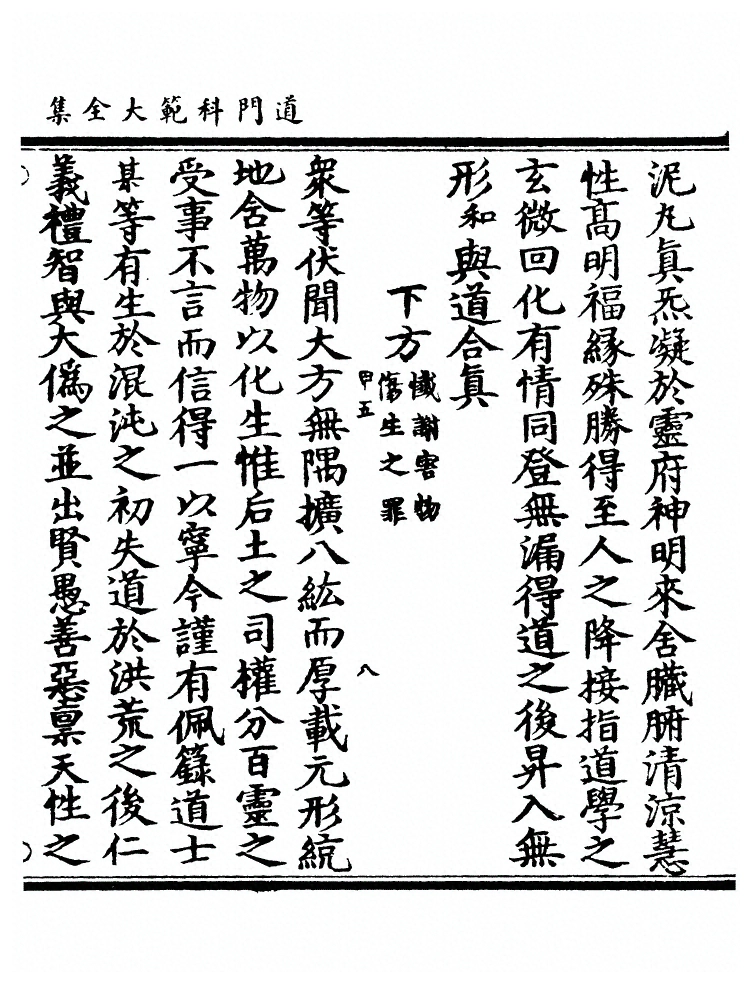 道門科範大全集
泥丸真炁凝於靈府神明來舍臟腑清涼慧
性高明福緣殊勝得至人之降接指道學之
玄微回化有情同登無漏得道之後昇入無
形和與道合真
下方懺謝害物傷生之罪
甲五
八
衆等伏聞大方無隅擴八紘而厚載元形統
地含萬物以化生惟后土之司權分百靈之
受事不言而信得一以寧今謹有佩籙道士
某等有生於混沌之初失道於洪荒之後仁
義禮智與大偽之並出賢愚善惡稟天性之